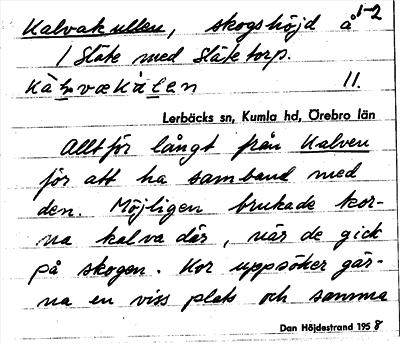 Kalvakullen, skogshöjd å 1-2
1 Släte med Slätetorp.
11.
Lerbäcks sn, Kumla hd, Örebro län
Alltför långt från Kalven
för att ha samband med
den. Möjligen brukade kor-
na kalva där, när de gick
på skogen. Kor uppsöker gär-
na en viss plats och samma
Dan Höjdestrand 1958